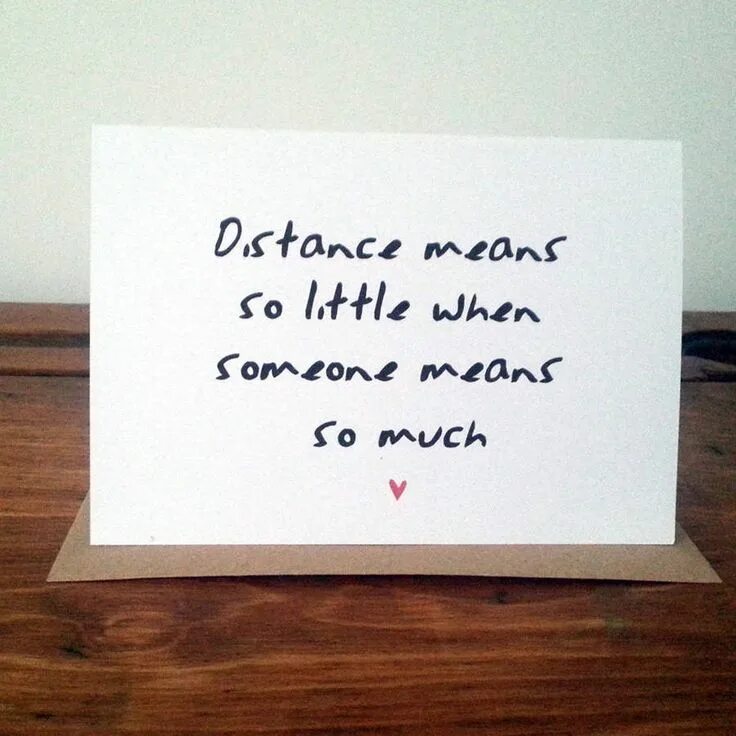 Distance means
so little when
someone means
so much